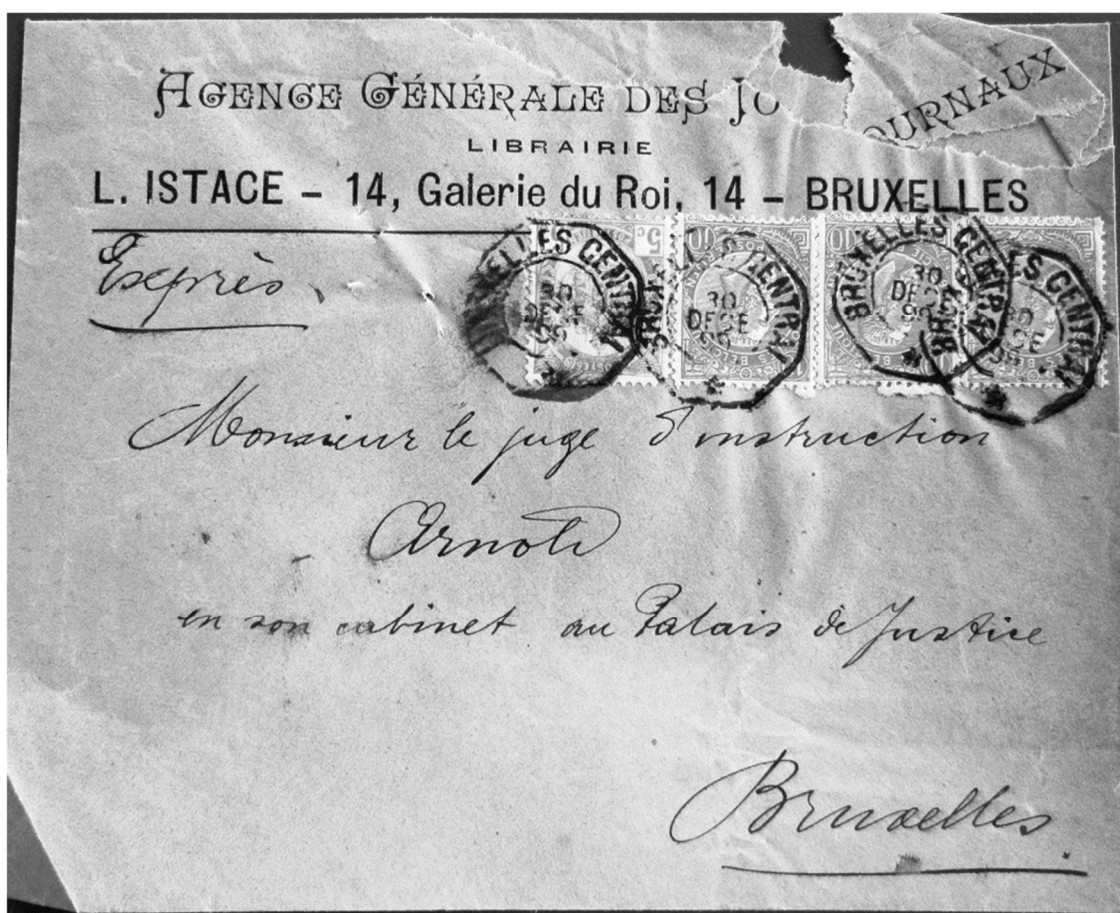 AGENCE GÉNÉRALE DES JO
OURNAUX
LIBRAIRIE
L. ISTACE – 14, Galerie du Roi, 14 – BRUXELLES
Exprès.
5c 10 10
BRUXELLES CENTRAL
30
DECE
BRUXELLES CENTRAL
30
DECE
BRUXELLES CENTRAL
30
DECE
BRUXELLES CENTRAL
30
DECE
Monsieur le juge d'instruction
Arnold
en son cabinet au Palais de Justice
Bruxelles